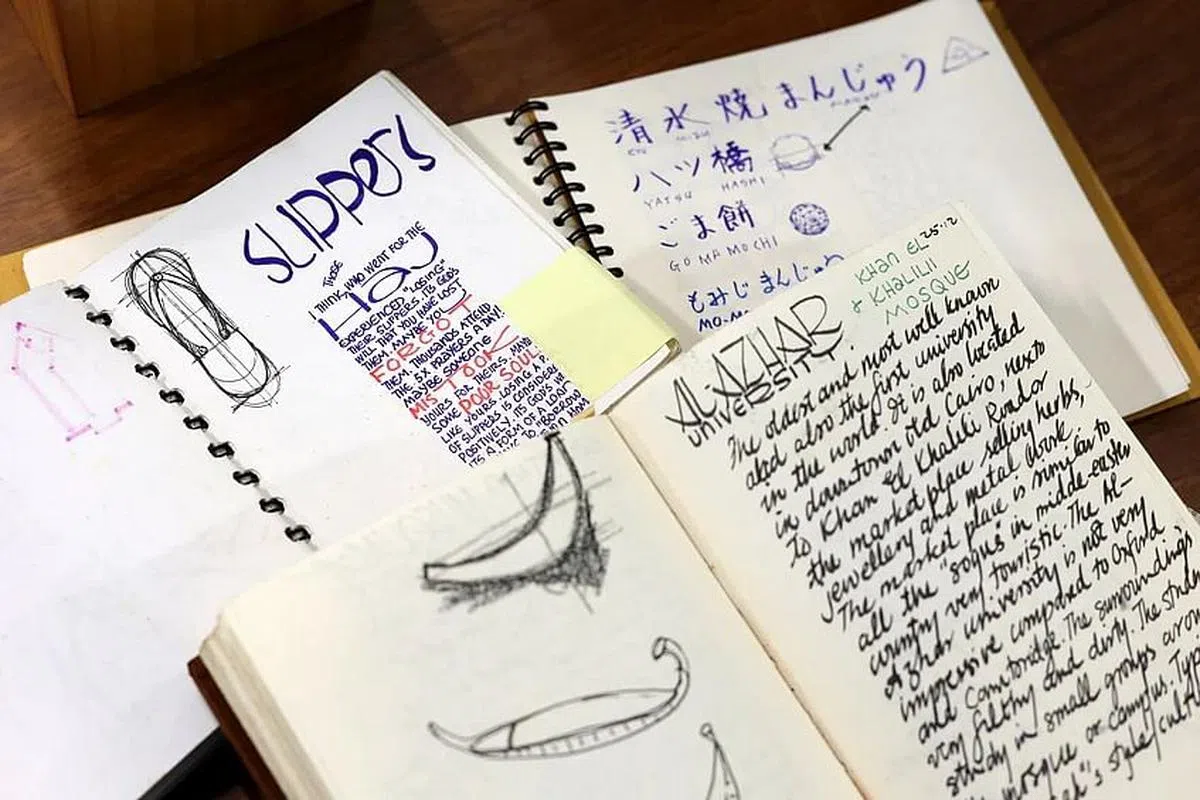 SLIPPERS
I THINK THOSE WHO WENT FOR THE
HAJ
EXPERIENCED "LOSING"
THEIR SLIPPERS. ITS GOD'S
WILL THAT YOU HAVE LOST
THEM. MAYBE YOU
FORGOT
THEM. THOUSANDS ATTEND
THE 5X PRAYERS A DAY!
MAYBE SOMEONE
MISTOOK
YOURS FOR THEIRS. MAYBE
SOME POOR SOUL
LIKE YOURS. LOSING A P
OF SLIPPERS IS CONSIDERE
POSITIVELY. ITS GOD'S W
ITS A FORM OF A LOAN
TO "BORROW
清水焼まんじゅう
MIZU
八ツ橋
YATSU HASHI
ごま餅
GOMA MOCHI
もみじまんじゅう
25.12
KHAN EL
& KHALILII
MOSQUE
AL-AZHAR
UNIVERSITY
The oldest and most well known
and also the first university
in the world. It is also located
in downtown old Cairo, next to
to Khan El Khalili Road or
the market place selling herbs,
jewellery and metal work.
The market place is similar to
all the "souqs" in midde-easter
country very touristic. The Al-
Azhar university is not very
impressive compared to Oxford
and Cambridge. The surroundings
very filthy and dirty. The studen
study in small groups aroun
mosque or campus. Typi
style/cultu